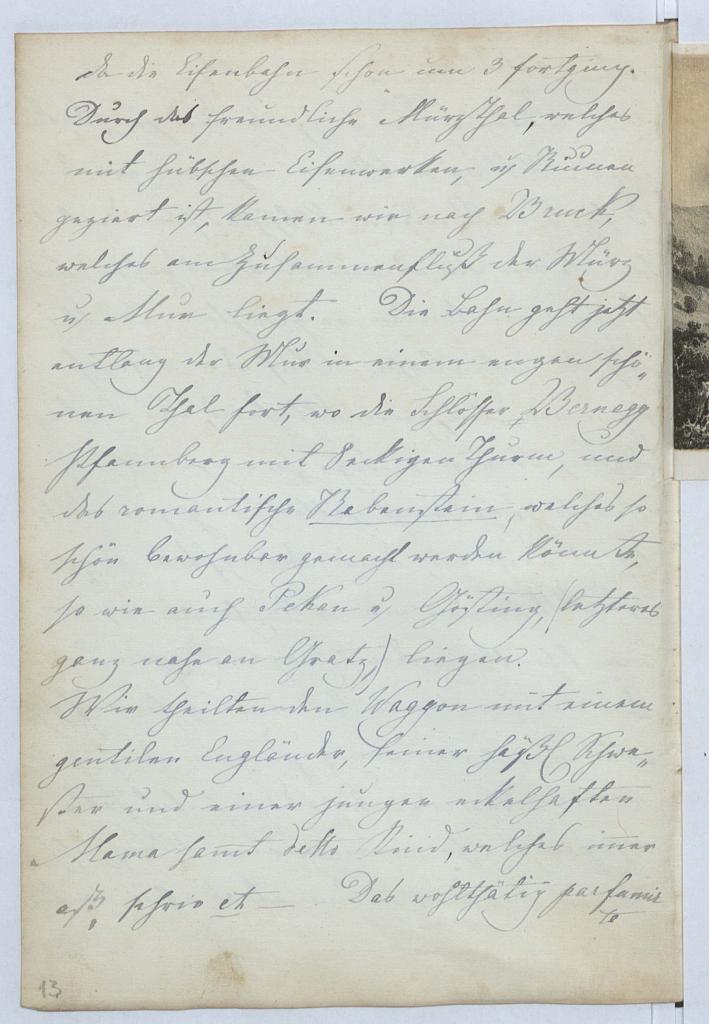 da die Eisenbahn schon um 3 fortging.
Durch das freundliche Mürzthal, welches
mit hübschen Eisenwerken, u Ruinen
geziert ist, kamen wir nach Bruck,
welches am Zusammenfluß der Mürz
u Mur liegt. Die Bahn geht jetzt
entlang der Mur in einem engen schö„
nen Thal fort, wo die Schlösser Bernegg
Pfannberg mit 8eckigen Thurm, und
das romantische Rabenstein, welches so
schön bewohnbar gemacht werden könnte,
so wie auch Pekau u Gösting, (letzteres
ganz nahe an Gratz,) liegen.
Wir theilten den Waggon mit einem
gentilen Engländer, seiner häßl Schwe„
ster und einer jungen eckelhaften
Mama samt detto Kind, welches imer
aß, schrie et — Das wohlthätig parfumir
te
13